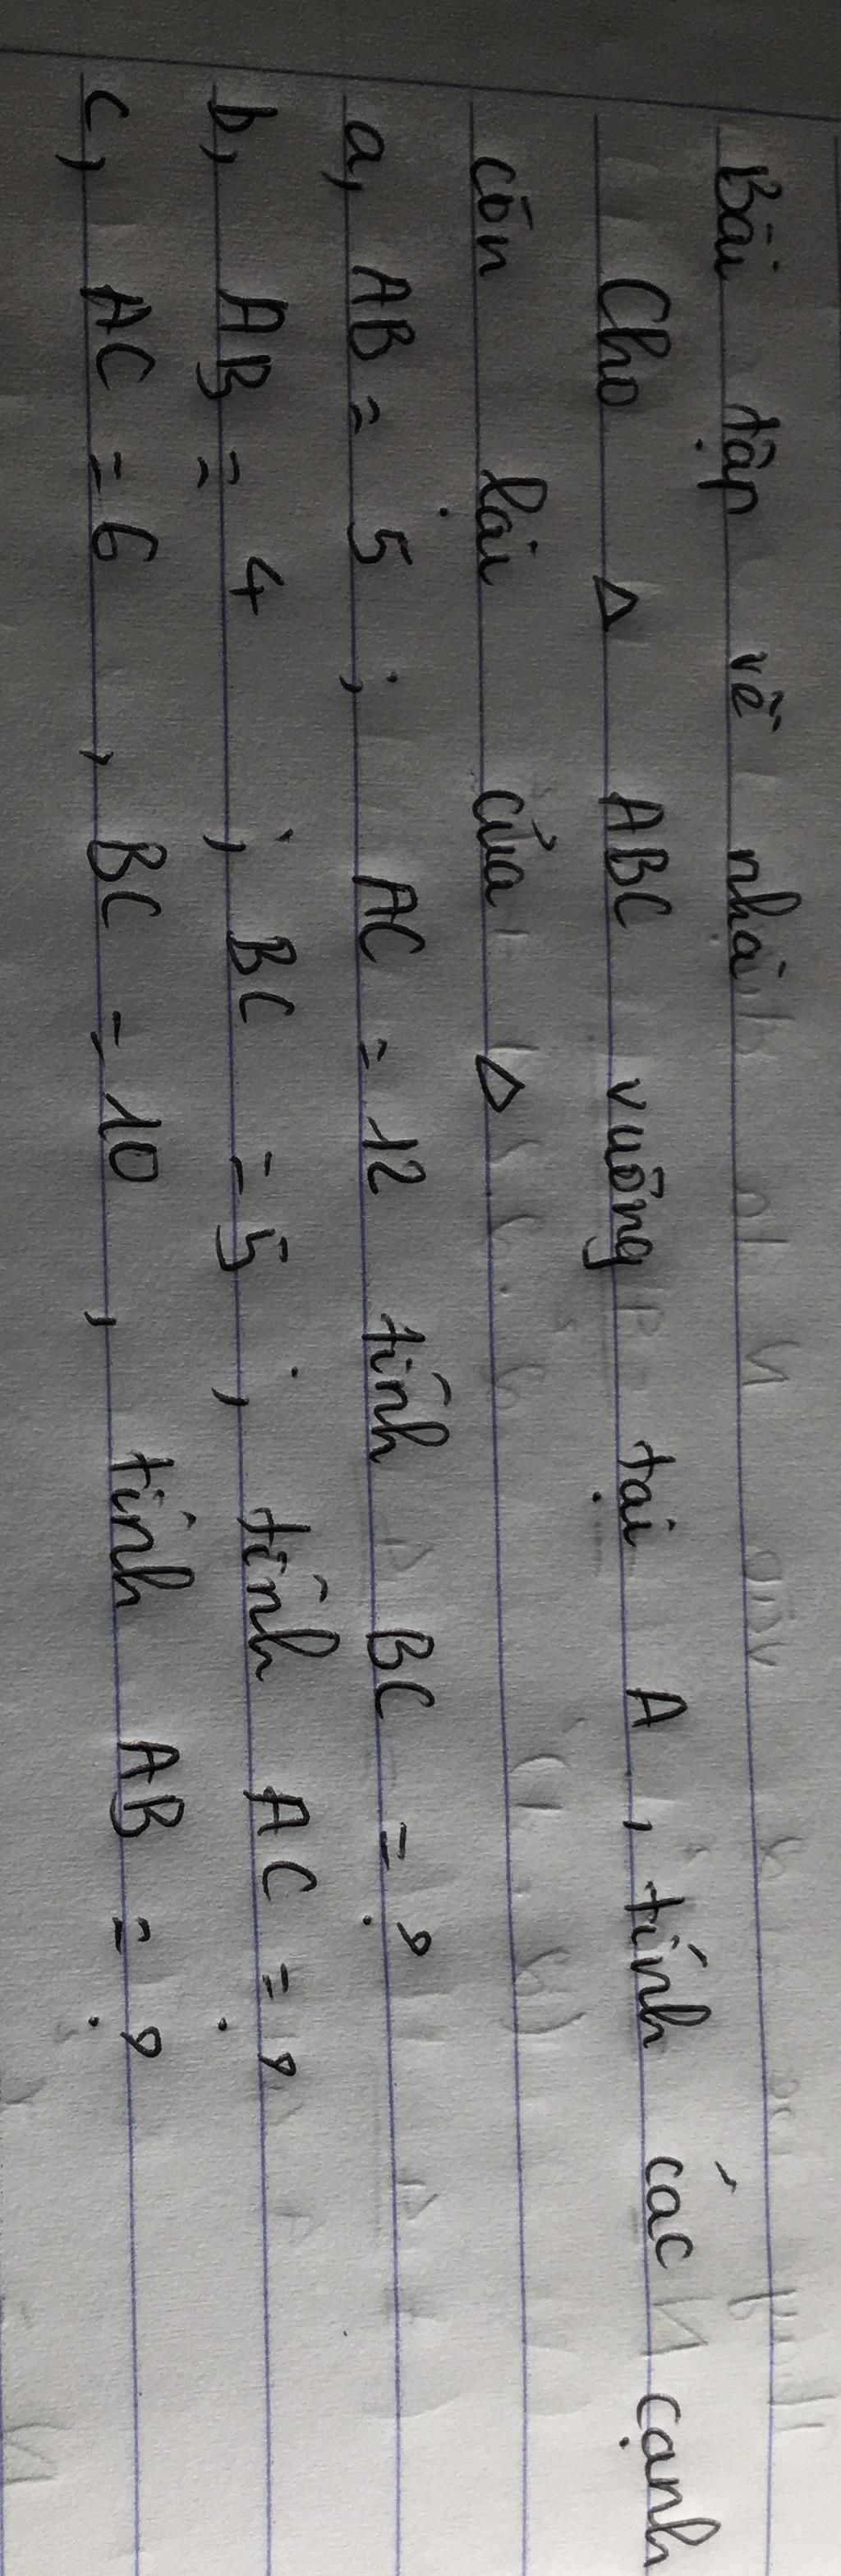 Bài tập về nhà
Cho Δ ABC vuông tại A, tính các cạnh
còn lại của Δ
a, AB = 5 ; AC = 12 tính BC = ?
b, AB = 4 ; BC = 5 ; tính AC = ?
c, AC = 6 , BC = 10 , tính AB = ?